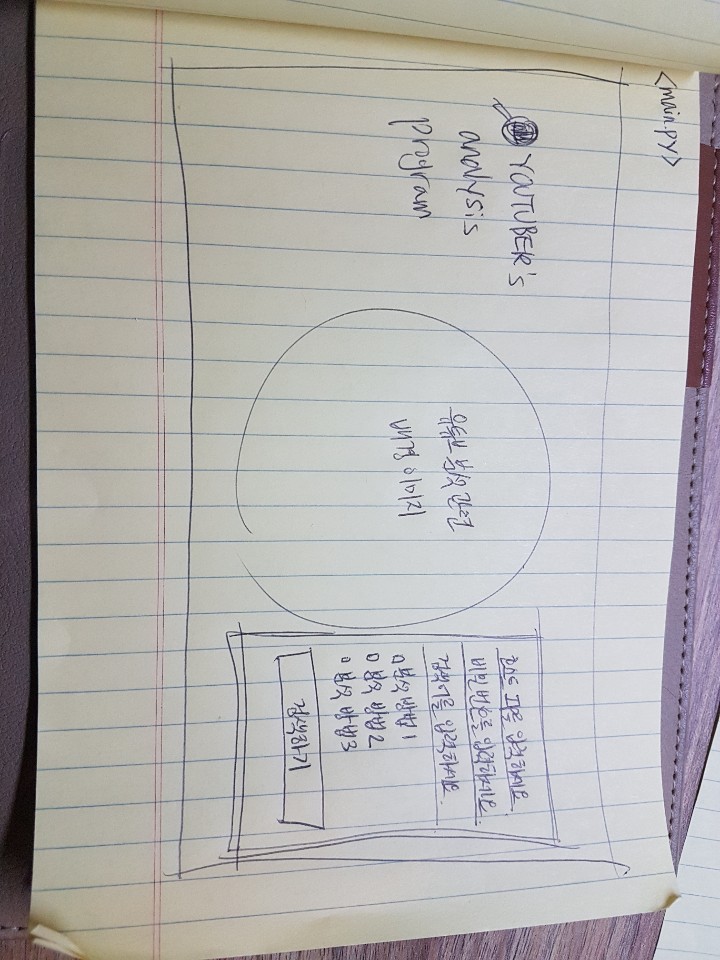 <main.py>
YOUTUBER's
analysis
program
유튜브 분석 관련
배경 이미지
코드 고유 입력하세요.
비밀번호를 입력하세요.
검색어를 입력하세요.
0 분석 방법 1
0 분석 방법 2
0 분석 방법 3
검색하기